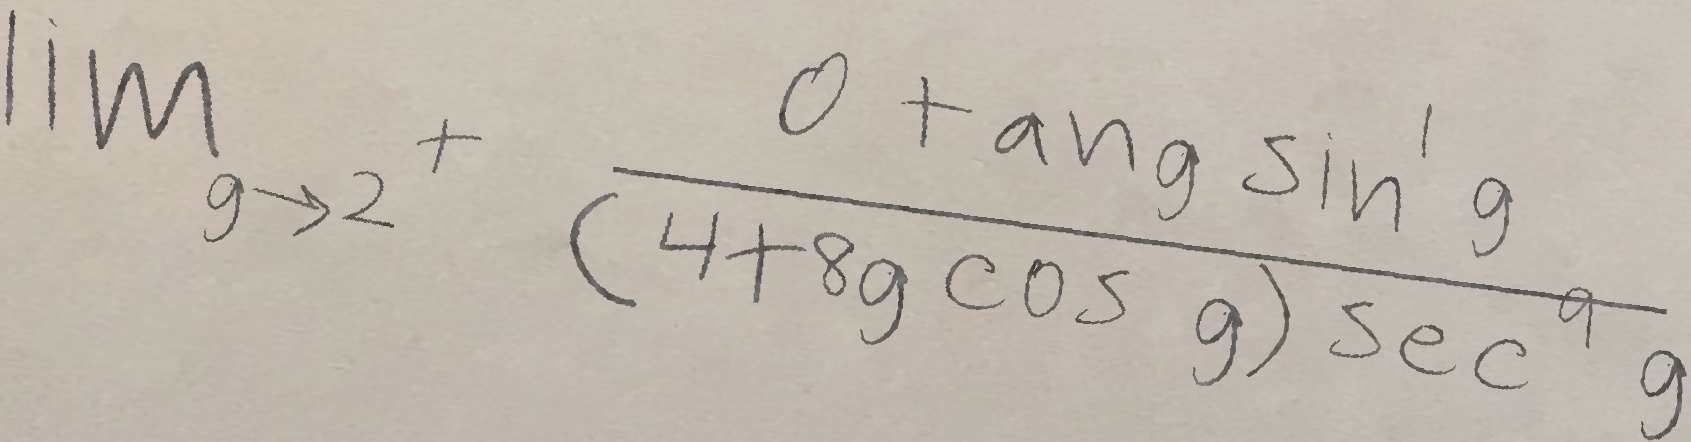 lim g→2⁺ (0 + an g sin¹ g) / ((4+8g cos g) sec⁹ g)